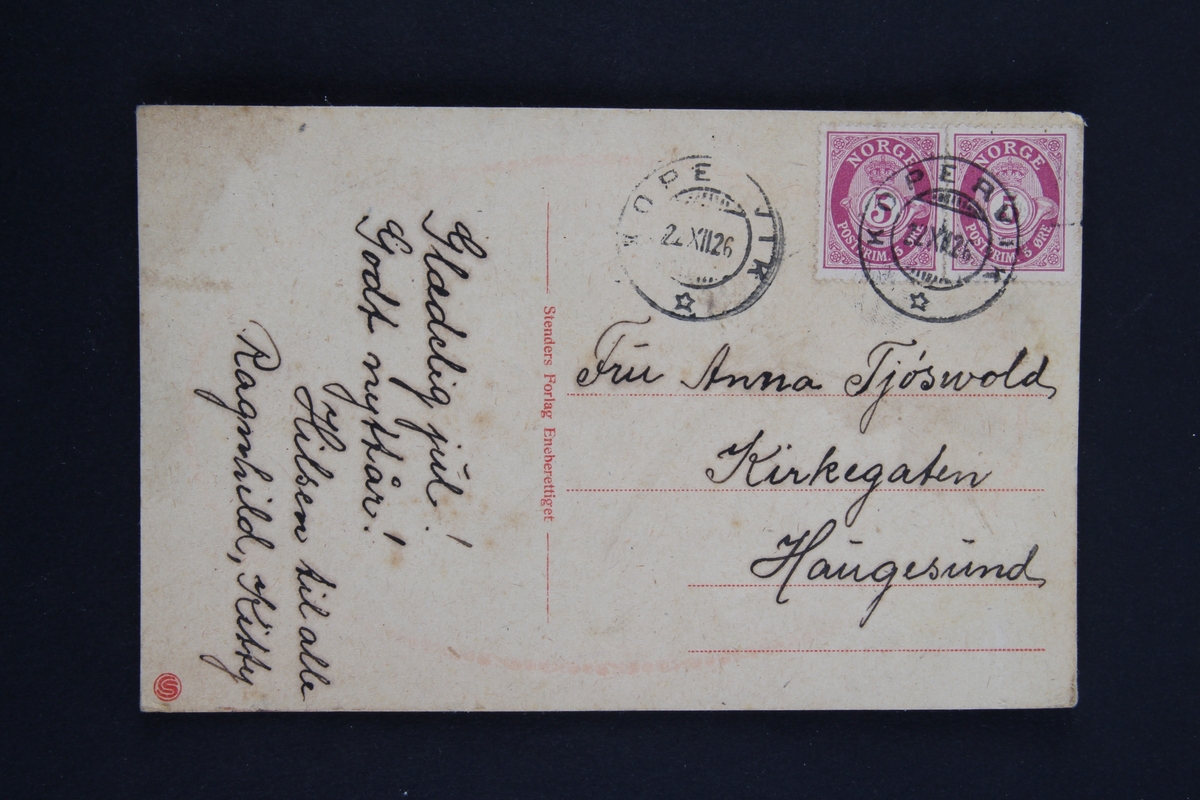 Glædelig jul!
Godt nyttår!
Hilsen til alle
Ragnhild, Kitty
Stenders Forlag Eneberettiget
KOPE VIK
22 XII 26
NORGE
5
POSTFRIM. 5 ØRE
NORGE
POSTFRIM. 5 ØRE
KOPERVIK
22 XII 26
Fru Anna Tjøswold
Kirkegaten
Haugesund